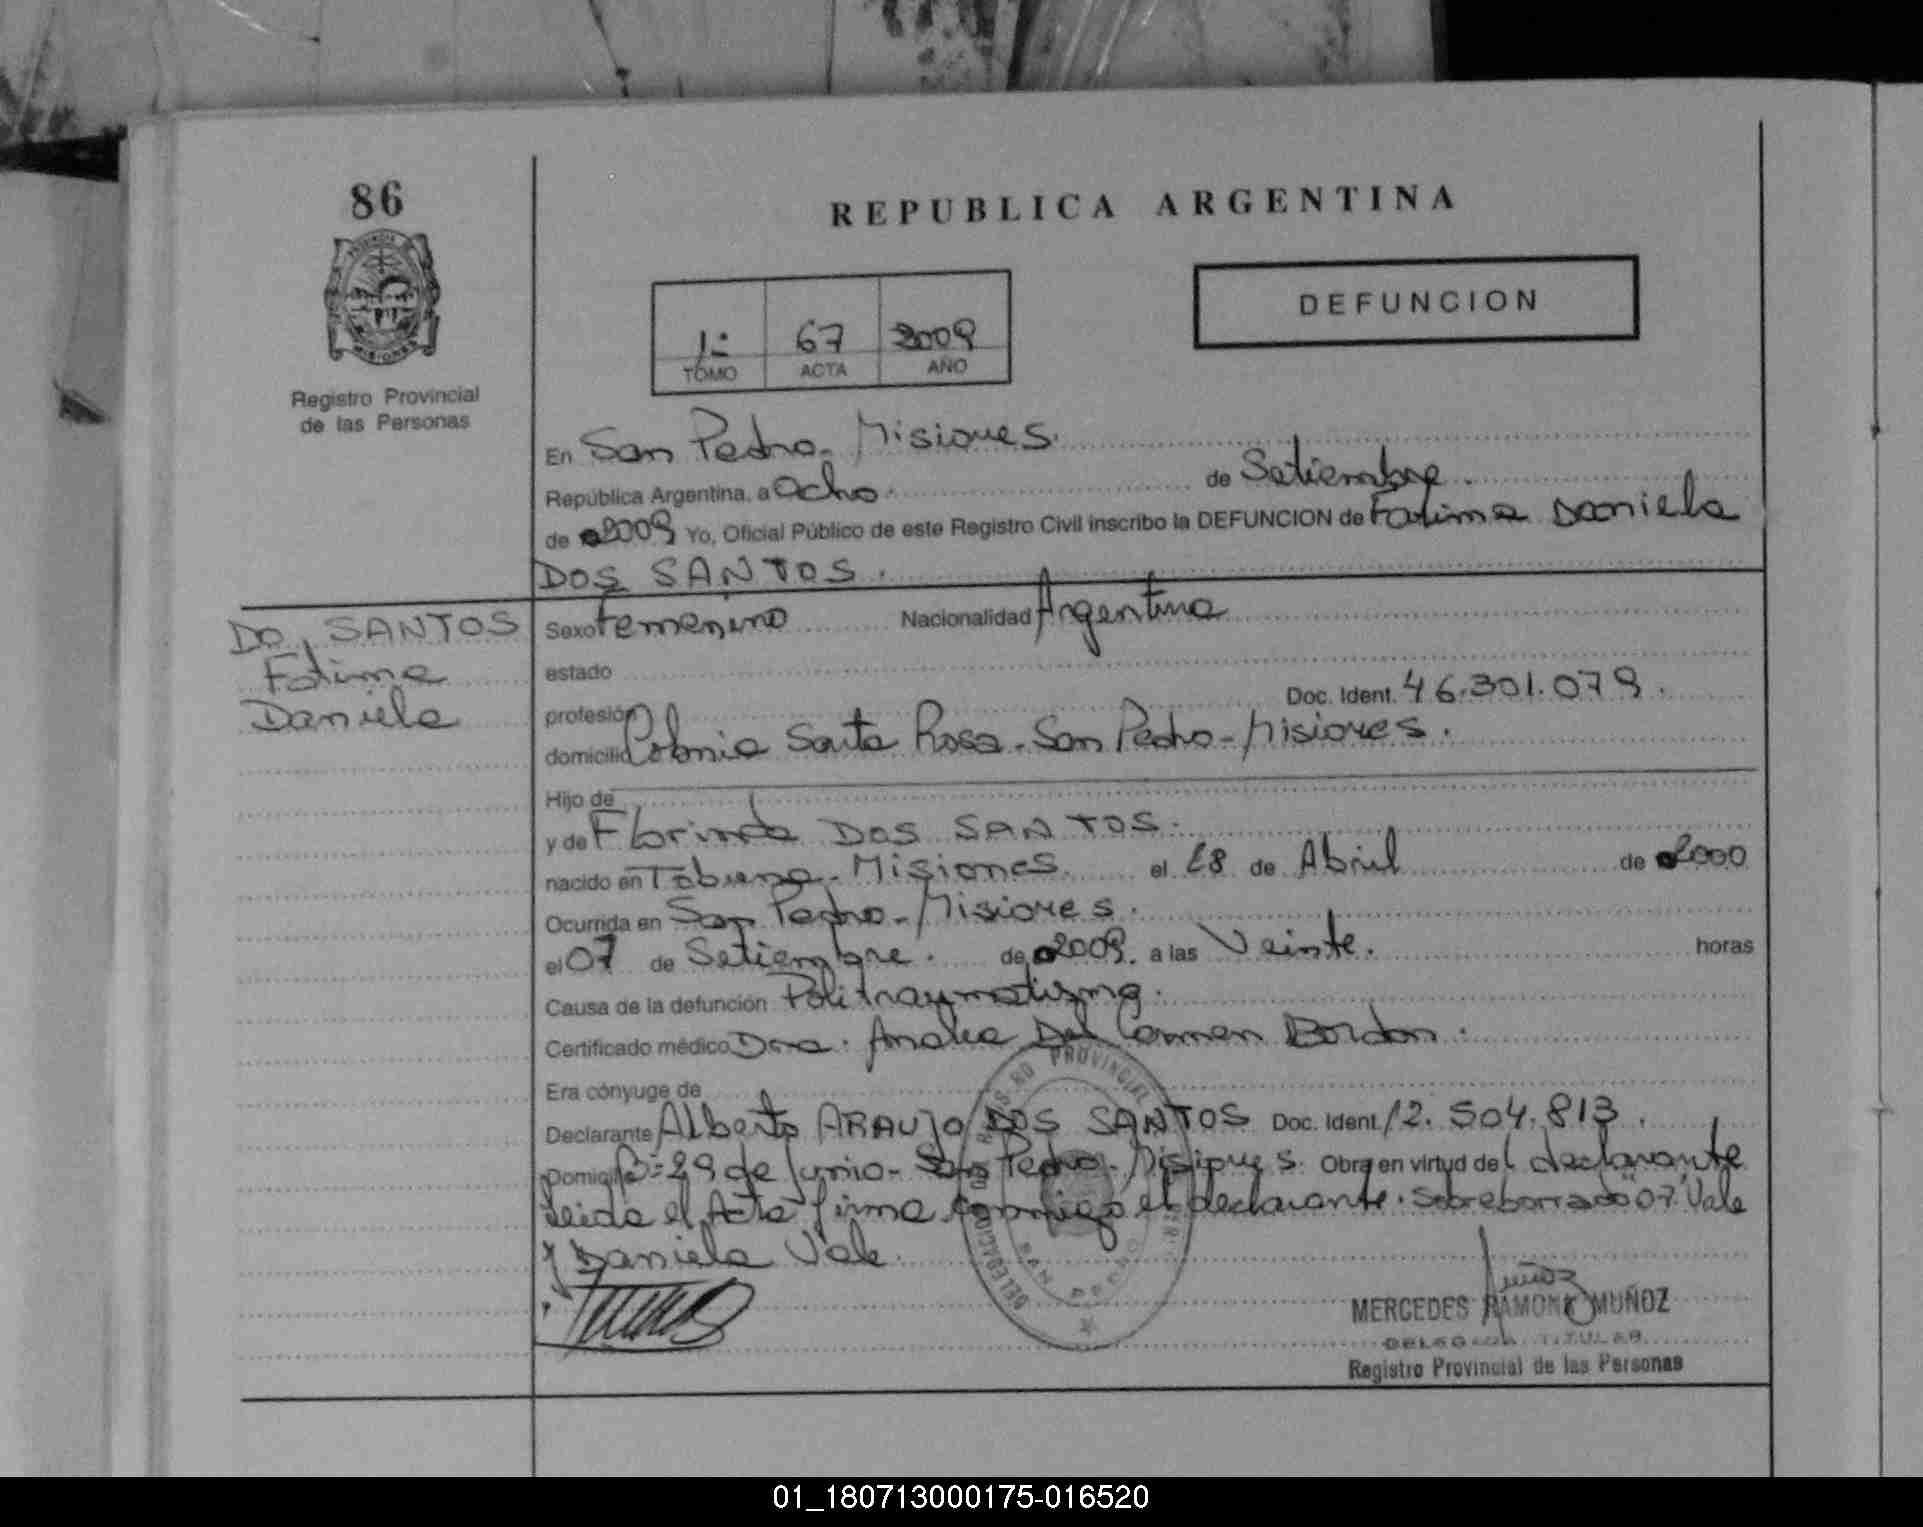 86
REPUBLICA ARGENTINA
DEFUNCION
1º 67 2009
TOMO ACTA AÑO
Registro Provincial
de las Personas
En San Pedro - Misiones.
República Argentina, a Ocho. de Setiembre.
de 2009 Yo, Oficial Público de este Registro Civil inscribo la DEFUNCION de Fatima Daniela
DOS SANTOS.
DOS SANTOS
Fatima
Daniela
Sexo femenino Nacionalidad Argentina
estado
profesión Doc. Ident. 46.301.079.
domicilio Colonia Santa Rosa - San Pedro - Misiones.
Hijo de
y de Florinda DOS SANTOS.
nacido en Tobuna - Misiones el 28 de Abril de 2000
Ocurrida en San Pedro - Misiones.
el 07 de Setiembre. de 2009. a las Veinte. horas
Causa de la defunción Politraumatismo.
Certificado médico Dra. Analia Del Carmen Bordon.
Era cónyuge de
Declarante Alberto ARAUJO DOS SANTOS Doc. Ident. 12.504.813.
Domicilio Bº 29 de Junio - San Pedro - Misiones. Obra en virtud del declarante
leida el Acta firma conmigo el declarante. Sobreborrado "07" Vale
y Daniela Vale
DELEGACION REGISTRO PROVINCIAL DE LAS PER.
SAN PEDRO
MERCEDES RAMONA MUÑOZ
DELEGADA TITULAR
Registro Provincial de las Personas
PROVINCIA DE
MISIONES
01_180713000175-016520